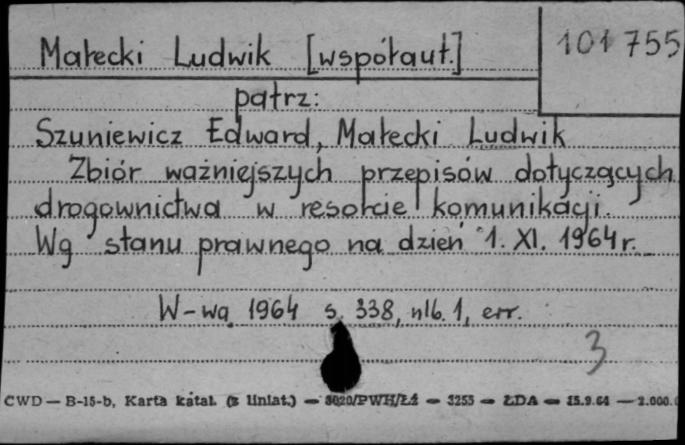 Małecki Ludwik [współaut.]
101 755
patrz:
Szuniewicz Edward, Małecki Ludwik
Zbiór ważniejszych przepisów dotyczących
drogownictwa w resorcie komunikacji.
Wg stanu prawnego na dzień 1. XI. 1964 r.
W-wa 1964 s. 338, nlb. 1, err.
3
CWD — B-15-b, Karta katal. (z liniat.) — 8020/PWH/Łź — 3255 — ŁDA — 15.9.64 — 2.000.